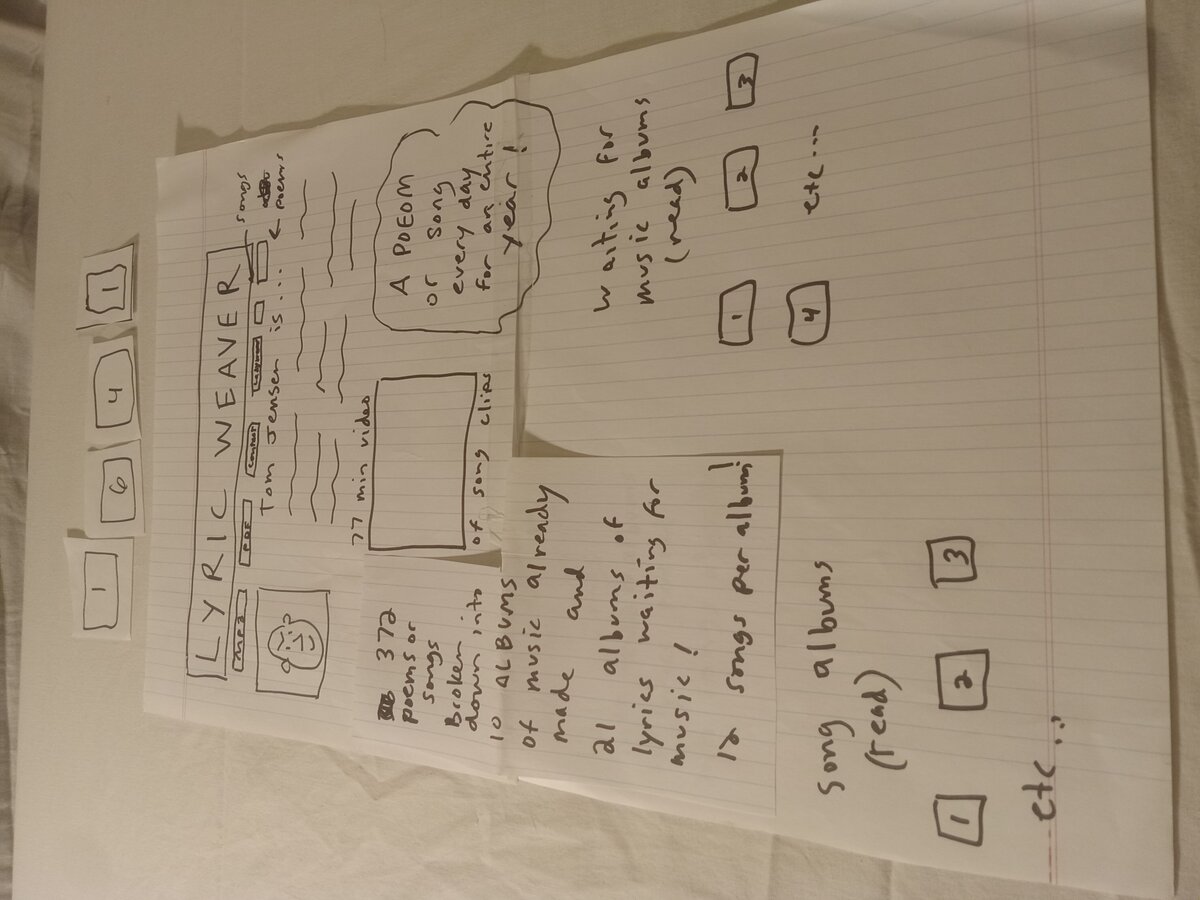 1
6
4
1
LYRIC WEAVER
MP3
PDF
Contact
songs
← poems
Tom Jensen is...
77 min video
of song clips
A POEOM
or song
every day
for an entire
year!
372
poems or
songs
Broken
down into
10 ALBUMS
of music already
made and
21 albums of
lyrics waiting for
music!
12 songs per album!
waiting for
music albums
(read)
1 2 3
4 etc...
song albums
(read)
1 2 3
etc...